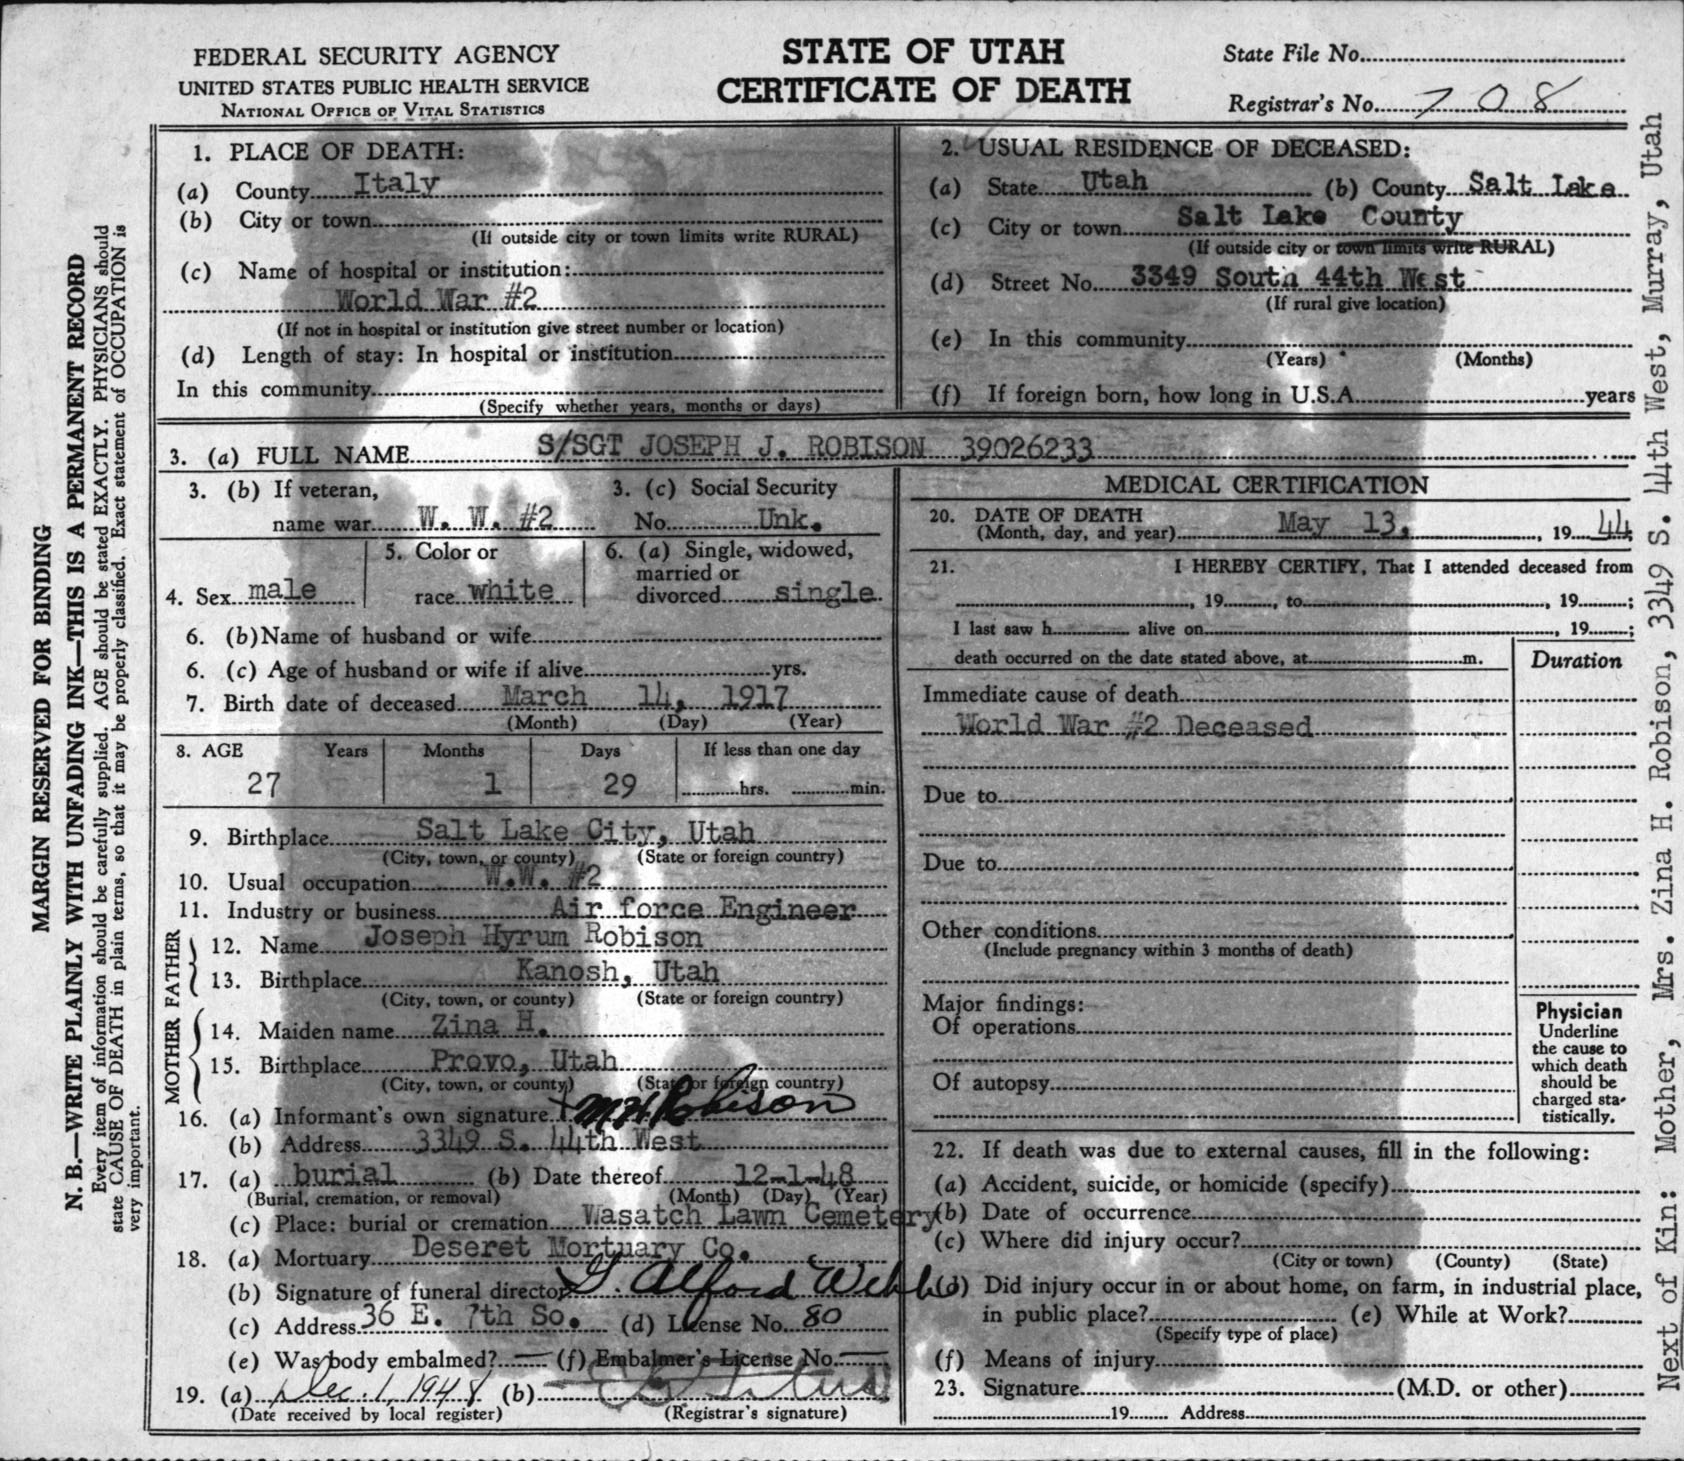 FEDERAL SECURITY AGENCY
UNITED STATES PUBLIC HEALTH SERVICE
NATIONAL OFFICE OF VITAL STATISTICS
STATE OF UTAH
CERTIFICATE OF DEATH
State File No.
Registrar's No. 708
MARGIN RESERVED FOR BINDING
N. B.—WRITE PLAINLY WITH UNFADING INK—THIS IS A PERMANENT RECORD
Every item of information should be carefully supplied. AGE should be stated EXACTLY. PHYSICIANS should
state CAUSE OF DEATH in plain terms, so that it may be properly classified. Exact statement of OCCUPATION is
very important.
1. PLACE OF DEATH:
(a) County Italy
(b) City or town
(If outside city or town limits write RURAL)
(c) Name of hospital or institution:
World War #2
(If not in hospital or institution give street number or location)
(d) Length of stay: In hospital or institution
In this community
(Specify whether years, months or days)
2. USUAL RESIDENCE OF DECEASED:
(a) State Utah (b) County Salt Lake
(c) City or town Salt Lake County
(If outside city or town limits write RURAL)
(d) Street No. 3349 South 44th West
(If rural give location)
(e) In this community
(Years) (Months)
(f) If foreign born, how long in U.S.A. years
3. (a) FULL NAME S/SGT JOSEPH J. ROBISON 39026233
3. (b) If veteran, 3. (c) Social Security
name war W. W. #2 No. Unk.
5. Color or 6. (a) Single, widowed,
married or
4. Sex male race white divorced single
6. (b) Name of husband or wife
6. (c) Age of husband or wife if alive yrs.
7. Birth date of deceased March 14, 1917
(Month) (Day) (Year)
8. AGE Years Months Days If less than one day
27 1 29 hrs. min.
9. Birthplace Salt Lake City, Utah
(City, town, or county) (State or foreign country)
10. Usual occupation W.W. #2
11. Industry or business Air force Engineer
FATHER
12. Name Joseph Hyrum Robison
13. Birthplace Kanosh, Utah
(City, town, or county) (State or foreign country)
MOTHER
14. Maiden name Zina H.
15. Birthplace Provo, Utah
(City, town, or county) (State or foreign country)
16. (a) Informant's own signature M H Robison
(b) Address 3349 S. 44th West
17. (a) burial (b) Date thereof 12-1-48
(Burial, cremation, or removal) (Month) (Day) (Year)
(c) Place: burial or cremation Wasatch Lawn Cemetery
18. (a) Mortuary Deseret Mortuary Co.
(b) Signature of funeral director G. Alford Webb
(c) Address 36 E. 7th So. (d) License No. 80
(e) Was body embalmed? — (f) Embalmer's License No. —
19. (a) Dec. 1, 1948 (b)
(Date received by local register) (Registrar's signature)
MEDICAL CERTIFICATION
20. DATE OF DEATH
(Month, day, and year) May 13, , 19 44
21. I HEREBY CERTIFY, That I attended deceased from
, 19 , to , 19 ;
I last saw h alive on , 19 ;
death occurred on the date stated above, at m.
Duration
Immediate cause of death
World War #2 Deceased
Due to
Due to
Other conditions
(Include pregnancy within 3 months of death)
Major findings:
Of operations
Of autopsy
Physician
Underline
the cause to
which death
should be
charged sta-
tistically.
22. If death was due to external causes, fill in the following:
(a) Accident, suicide, or homicide (specify)
(b) Date of occurrence
(c) Where did injury occur?
(City or town) (County) (State)
(d) Did injury occur in or about home, on farm, in industrial place,
in public place? (e) While at Work?
(Specify type of place)
(f) Means of injury
23. Signature (M.D. or other)
19 Address
Next of Kin: Mother, Mrs. Zina H. Robison, 3349 S. 44th West, Murray, Utah